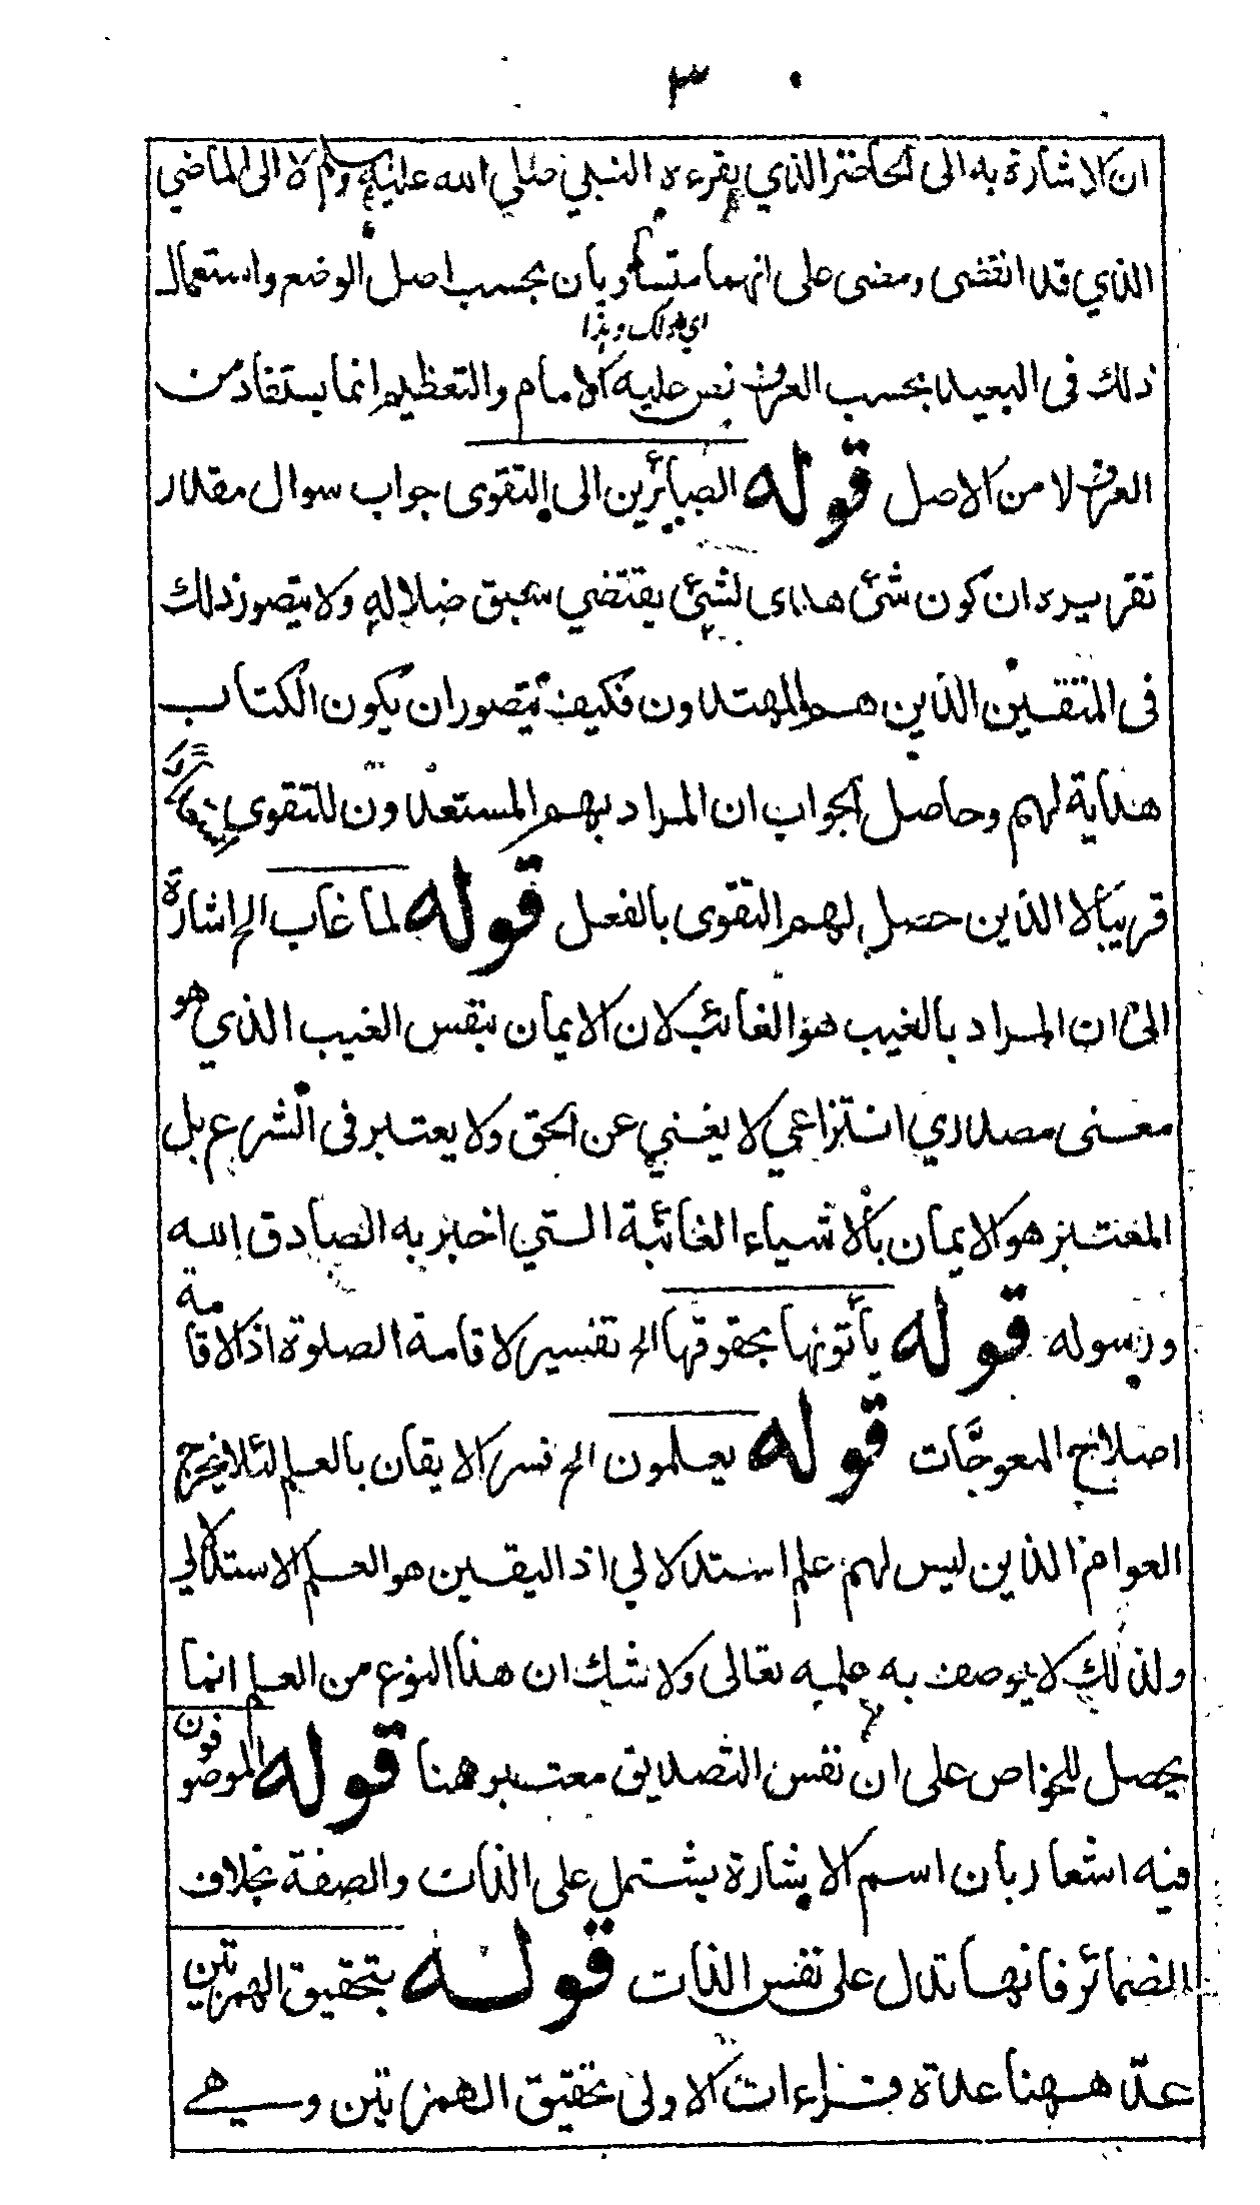 ٣
ان الاشارة به الى الحاضر الذي يقرءه النبي صلي الله عليه وسلم لا الى الماضي
الذي قد انقضى ومضى على انهما متساويان بحسب اصل الوضع واستعمال
اي ذلك وهذا
ذلك فى البعيد بحسب العرف نص عليه الامام والتعظيم انما يستفاد من
العرف لا من الاصل قوله الصائرين الى التقوى جواب سوال مقدر
تقريره ان كون شئ هدى لشئ يقتضي سبق ضلاله ولا يتصور ذلك
فى المتقين الذين هم المهتدون فكيف يتصور ان يكون الكتاب
هداية لهم وحاصل الجواب ان المراد بهم المستعدون للتقوى
قريبا لا الذين حصل لهم التقوى بالفعل قوله لما غاب الخ اشارة
الى ان المراد بالغيب هو الغائب لان الايمان بنفس الغيب الذي هو
معنى مصدري انتزاعي لا يغني عن الحق ولا يعتبر فى الشرع بل
المعتبر هو الايمان بالاشياء الغائبة التي اخبر به الصادق الله
ورسوله قوله يأتونها بحقوقها الخ تفسير لاقامة الصلوة اذ الاقامة
اصلاح المعوجّات قوله يعلمون الخ فسر الايقان بالعلم لئلا يخرج
العوام الذين ليس لهم علم استدلالي اذ اليقين هو العلم الاستدلالي
ولذلك لا يوصف به علمه تعالى ولا شك ان هذا النوع من العلم انما
يحصل للخواص على ان نفس التصديق معتبر هنا قوله الموصوفون
فيه اشعار بان اسم الاشارة يشتمل على الذات والصفة بخلاف
الضمائر فانها تدل على نفس الذات قوله بتحقيق الهمزتين
عدّ ههنا عدة قراءات الاولى تحقيق الهمزتين وسيهے